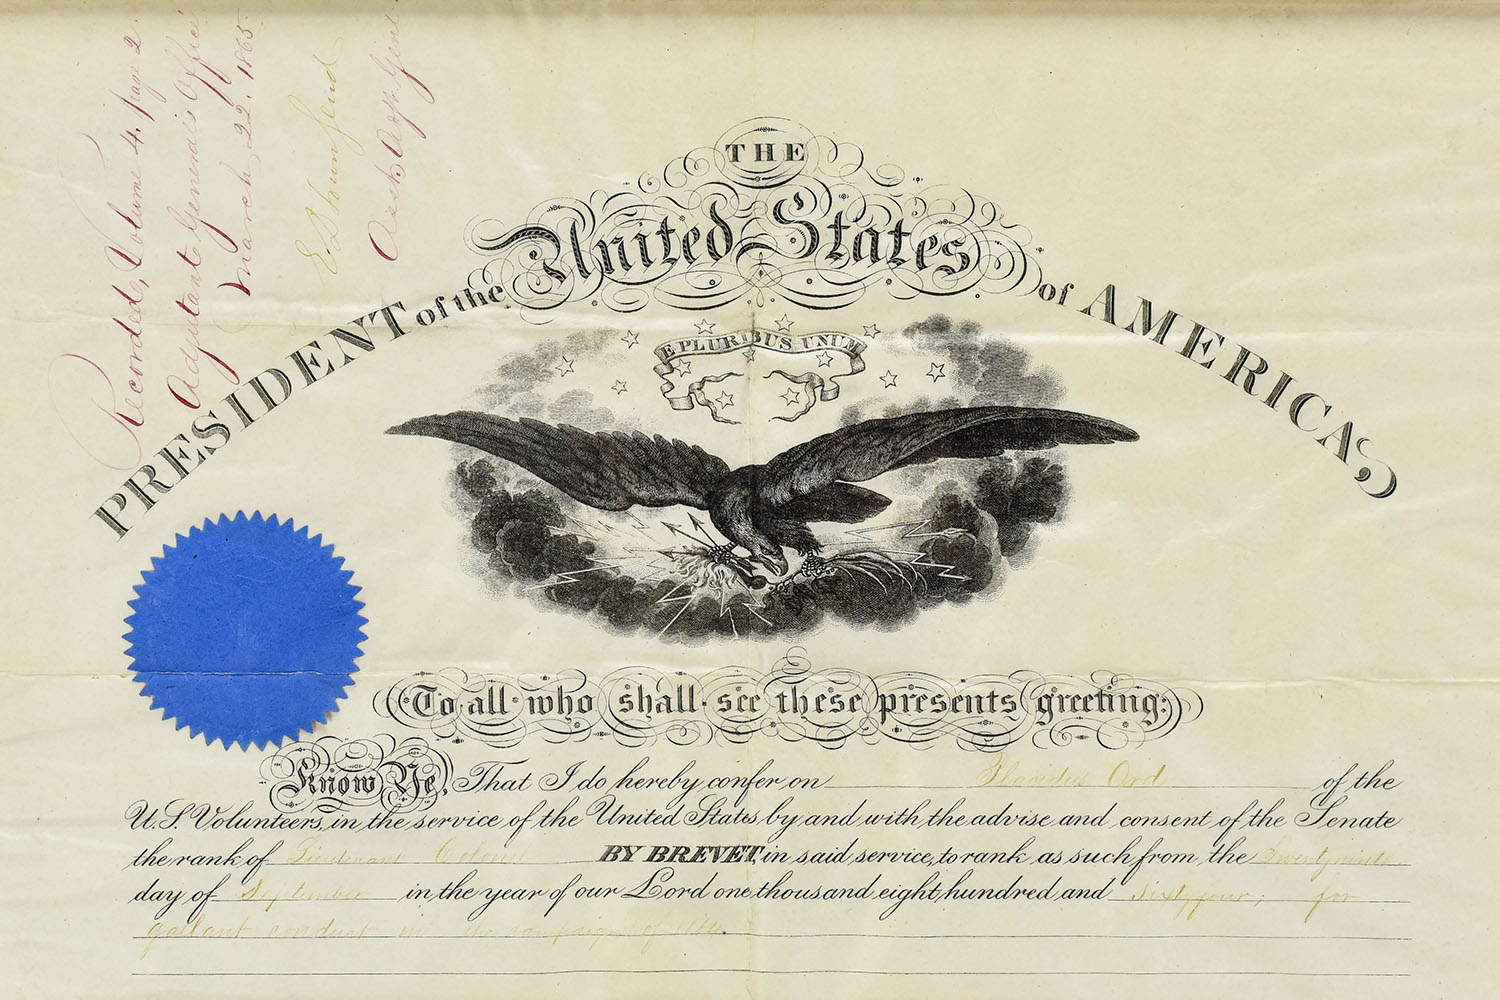 Recorded, Volume 4, page 2.
Adjutant General's Office
March 22. 1865.
E. D. Townsend
Asst. Adjt. Genl.
THE
PRESIDENT of the United States of AMERICA,
E PLURIBUS UNUM
To all who shall see these presents greeting:
Know Ye, That I do hereby confer on Placidus Ord of the
U.S. Volunteers, in the service of the United States by and with the advise and consent of the Senate
the rank of Lieutenant Colonel BY BREVET, in said service, to rank as such from the twenty ninth
day of September in the year of our Lord one thousand eight hundred and sixty four; for
gallant conduct in the campaign of 1864.